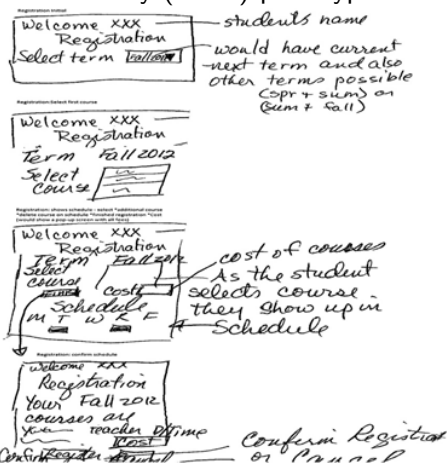 Registration Initial
Welcome XXX
Registration
Select term
student's name
would have current
next term and also
other terms possible
(spr + sum) or
(sum + Fall)
Registration: Select first course
Welcome XXX
Registration
Term Fall 2012
Select
Course
Registration: shows schedule - select *additional course
*delete course on schedule *finished registration *Cost
(would show a pop-up screen with all fees)
Welcome XXX
Registration
Term Fall 2012
Select
course
Cost
Schedule
M T W R F
cost of courses
As the student
selects course
they show up in
Schedule
Registration: confirm schedule
Welcome XXX
Registration
Your Fall 2012
courses are
Teacher D/Time
Cost
Confirm Register
Confirm Registration
or Cancel